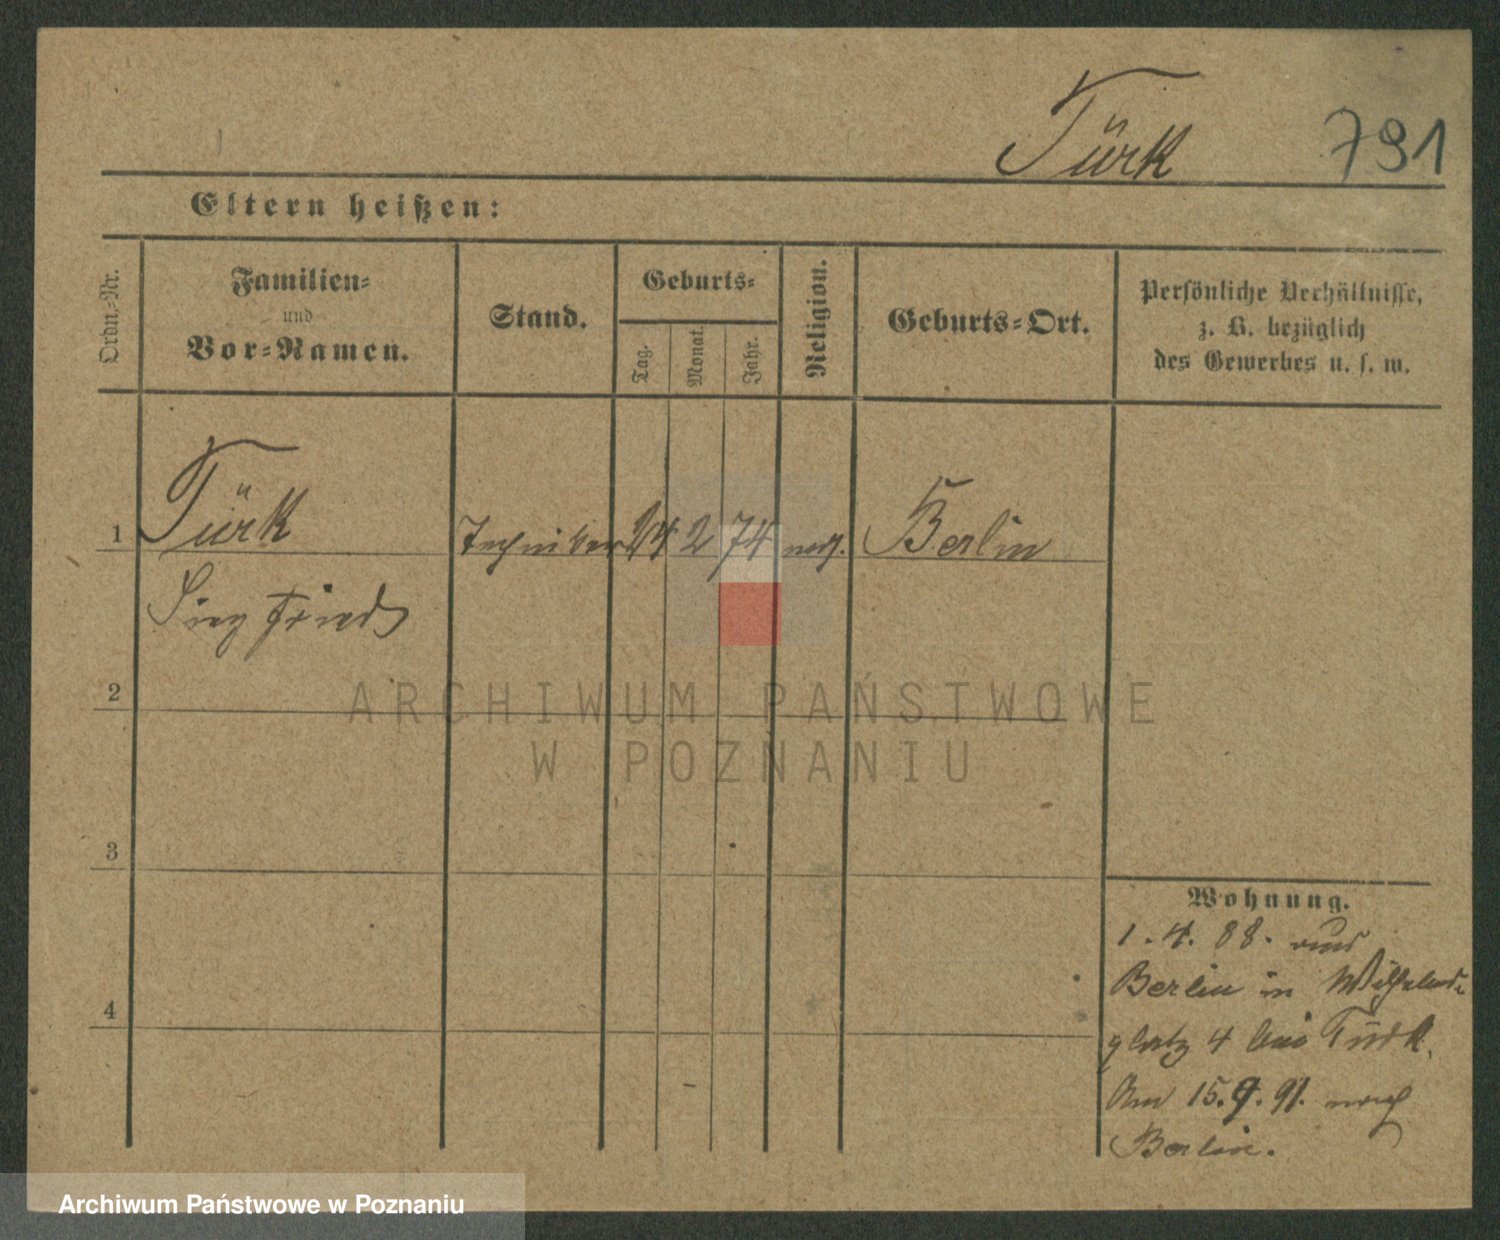 Türk 791
Eltern heißen:
Ordn.-Nr.
Familien-
und
Vor-Namen.
Stand.
Geburts-
Tag.
Monat.
Jahr.
Religion.
Geburts-Ort.
Persönliche Verhältnisse,
z. B. bezüglich
des Gewerbes u. s. w.
1 Türk Techniker 2 74 mos. Berlin
Siegfried
2
3
4
Wohnung.
1. 4. 88. aus
Berlin in Wilhelms-
platz 4 bei Türk.
Am 15. 9. 91. nach
Berlin.
ARCHIWUM PAŃSTWOWE
W POZNANIU
Archiwum Państwowe w Poznaniu